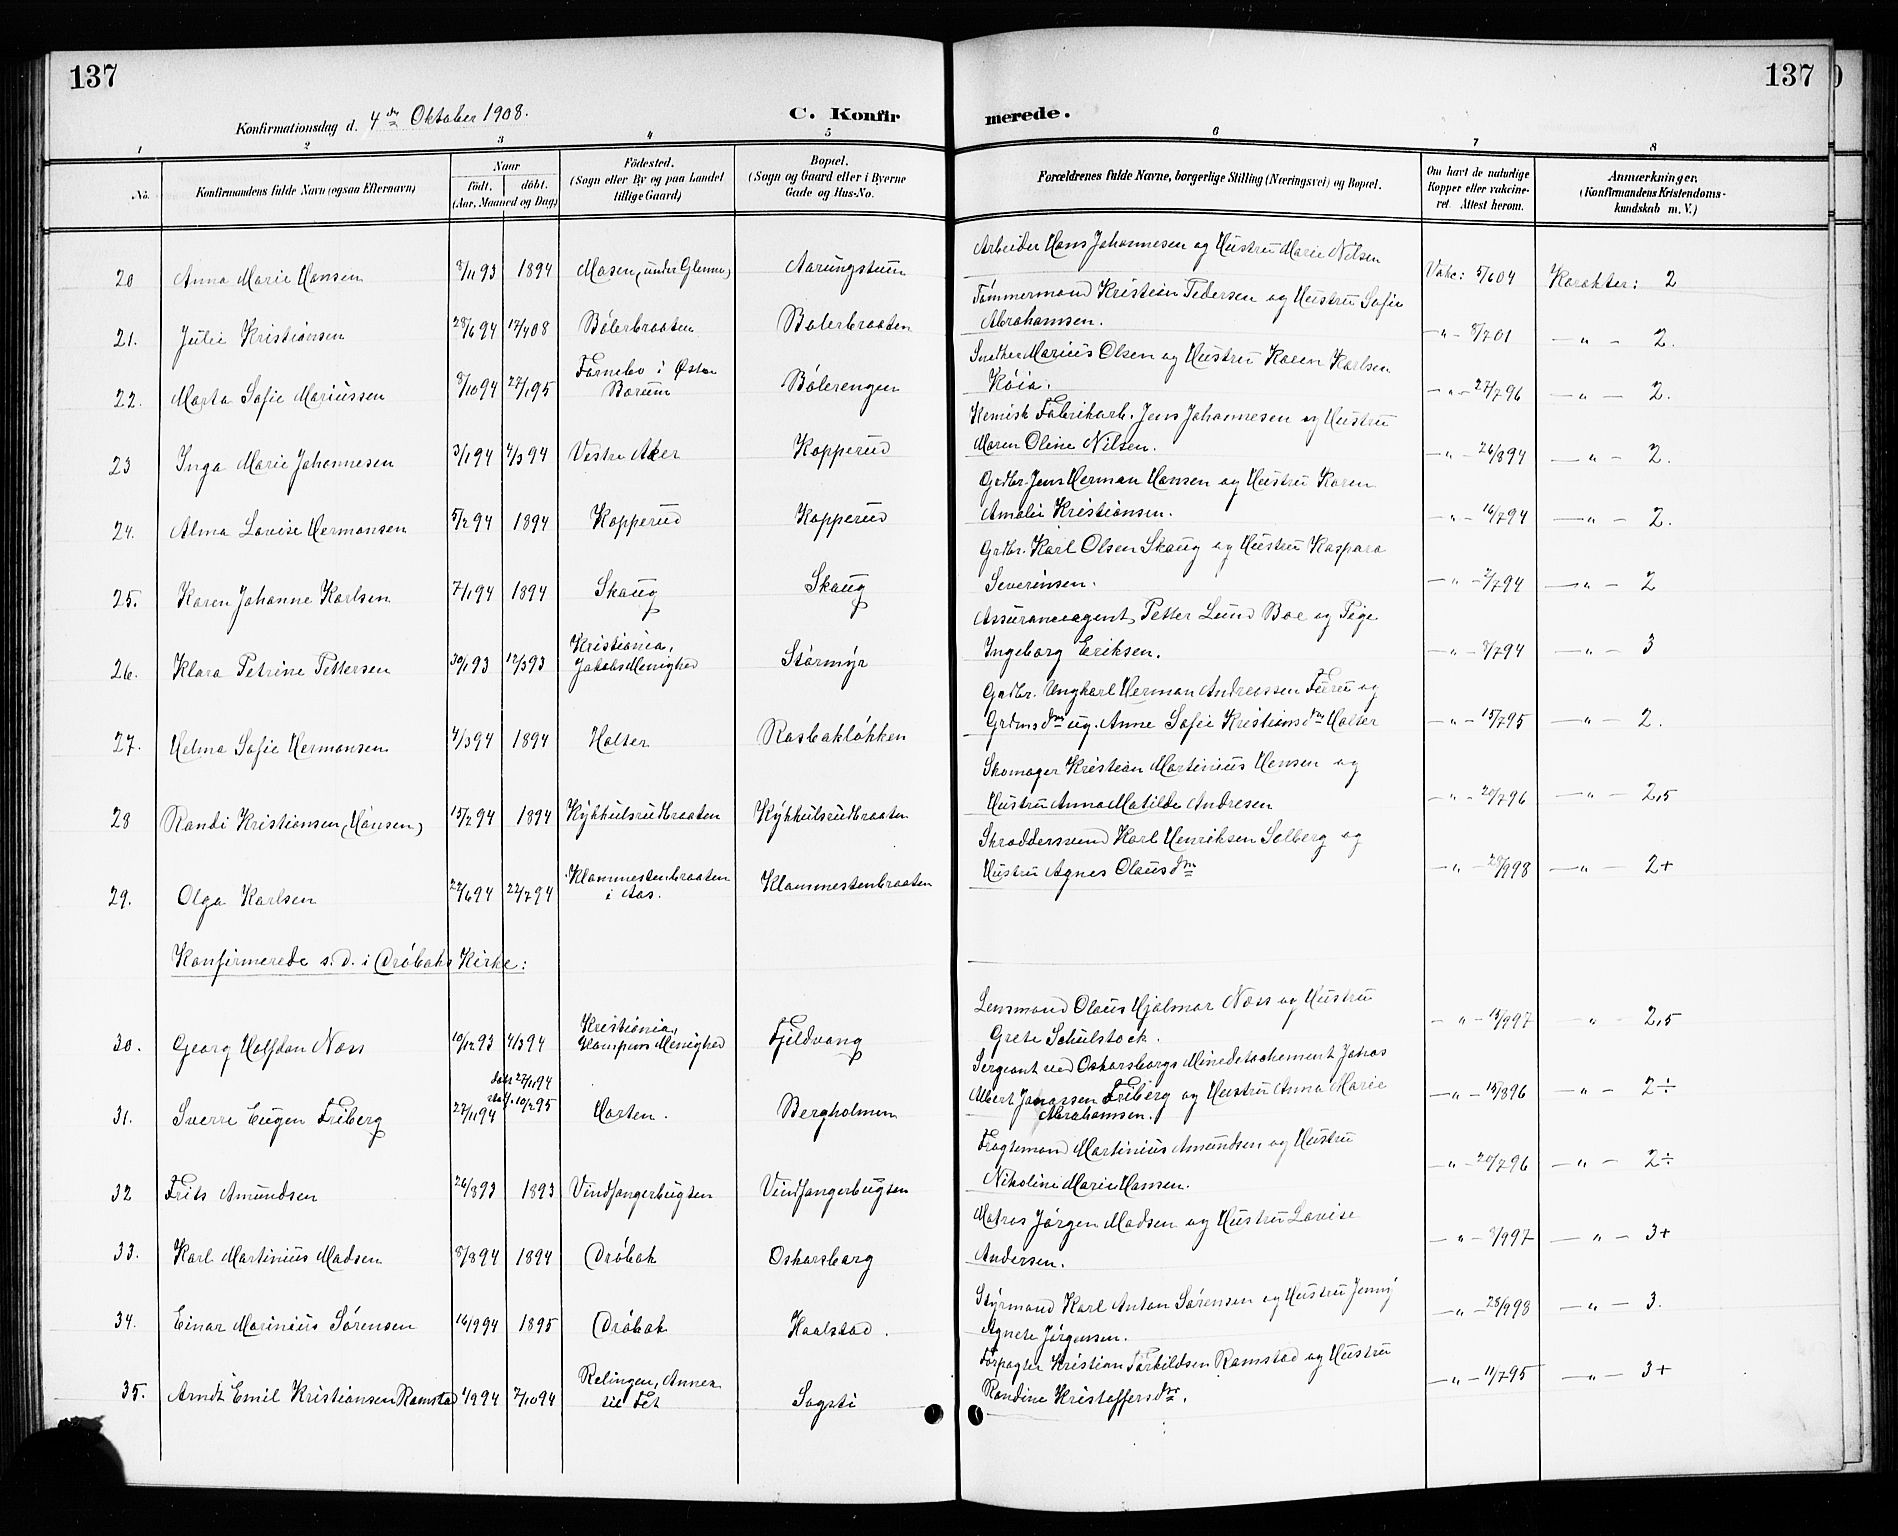 137
137
Konfirmationsdag d. 4de Oktober 1908.
C. Konfir
merede.
1 2 3 4 5 6 7 8
No.
Konfirmandens fulde Navn (ogsaa Efternavn)
Naar
födt. döbt.
(Aar, Maaned og Dag)
Födested.
(Sogn eller By og paa Landet
tillige Gaard)
Bopæl.
(Sogn og Gaard eller i Byerne
Gade og Hus-No.
Forældrenes fulde Navne, borgerlige Stilling (Næringsvei) og Bopæl.
Om havt de naturlige
Kopper eller vakcine-
ret. Attest herom.
Anmærkninger.
(Konfirmandens Kristendoms-
kundskab m. V.)
20 Anna Marie Hansen 8/11 93 1894 Mosen (under Glenne) Aarungstuen
Arbeider Hans Johannesen og Hustru Marie Nilsen
Vakc: 5/6 04 Karakter: 2
21. Julie Kristiansen 28/6 94 17/4 08 Bølerbraaten Bølerbraaten
Tømmermand Kristian Pedersen og Hustru Sofie
Abrahamsen.
—"— 8/7 01 —"— 2.
22. Marta Sofie Mariussen 8/10 94 27/1 95 Fornebo i Østre
Bærum Bølerengen
Snedker Marius Olsen og Hustru Karen Karlsen
Køia.
—"— 27/7 96 —"— 2.
23 Inga Marie Johannesen 3/1 94 4/3 94 Vestre Aker Kopperud
Kemisk Fabrikarb. Jens Johannesen og Hustru
Maren Oline Nilsen.
—"— 26/8 94 —"— 2.
24. Alma Lovise Hermansen 5/2 94 1894 Kopperud Kopperud
Grdbr. Jens Herman Hansen og Hustru Karen
Amalie Kristiansen.
—"— 16/7 94 —"— 2.
25. Karen Johanne Karlsen 7/1 94 1894 Skaug Skaug
Grdbr. Karl Olsen Skaug og Hustru Kaspara
Severinsen.
—"— 2/7 94 —"— 2
26. Klara Petrine Pettersen 30/1 93 12/3 93 Kristiania,
Jakobs Menighed Stormyr
Assuranceagent Petter Lund Boe og Pige
Ingeborg Eriksen.
—"— 9/7 94 —"— 3
27. Helma Sofie Hermansen 4/3 94 1894 Holter Rasbakløkken
Grdbr. Ungkarl Herman Andreassen Furu og
Grdmsdtr ug. Anne Sofie Kristiansdtr Holter
—"— 15/7 95 —"— 2.
28 Randi Kristiansen (Hansen) 15/2 94 1894 Kykkulsrudbraaten Kykkulsrudbraaten
Skomager Kristian Martinius Hansen og
Hustru Anna Matilde Andresen
—"— 20/7 96 —"— 2,5
29. Olga Karlsen 22/6 94 22/7 94 Klommestenbraaten
i Aas. Klommestenbraaten
Skræddersvend Karl Henriksen Solberg og
Hustru Agnes Olausdtr
—"— 29/9 98 —"— 2+
Konfirmerede s. d. i Drøbaks Kirke:
30. Georg Halfdan Næss 10/12 93 4/3 94 Kristiania,
Kampens Menighed Fjeldvang
Lensmand Olaus Hjalmar Næss og Hustru
Grete Schulstock.
—"— 15/9 97 —"— 2,5
døbt 27/11 94
stadf. 10/2 95
31. Sverre Eugen Friberg 22/11 94 Horten. Bergholmen
Sergeant ved Oskarsborgs Minedetachement Johas
Albert Johassen Friberg og Hustru Anna Marie
Abrahamsen.
—"— 15/8 96 —"— 2÷
32 Frits Amundsen 26/8 93 1893 Vindfangerbugten Vindfangerbugten
Fragtemand Martinius Amundsen og Hustru
Nikoline Marie Hansen.
—"— 20/7 96 —"— 2÷
33. Karl Martinius Madsen 8/8 94 1894 Drøbak Oskarsborg
Matros Jørgen Madsen og Hustru Lovise
Andersen.
—"— 3/9 97 —"— 3+
34. Einar Marinius Sørensen 16/9 94 1895 Drøbak Haalstad.
Styrmand Karl Anton Sørensen og Hustru Jenny
Agnete Jørgensen.
—"— 28/9 98 —"— 3.
35. Arndt Emil Kristiansen Ramstad 1/9 94 7/10 94 Rælingen, Annex
til Fet Sogsti
Forpagter Kristian Torkildsen Ramstad og Hustru
Randine Kristoffersdtr.
—"— 11/7 95 —"— 3+